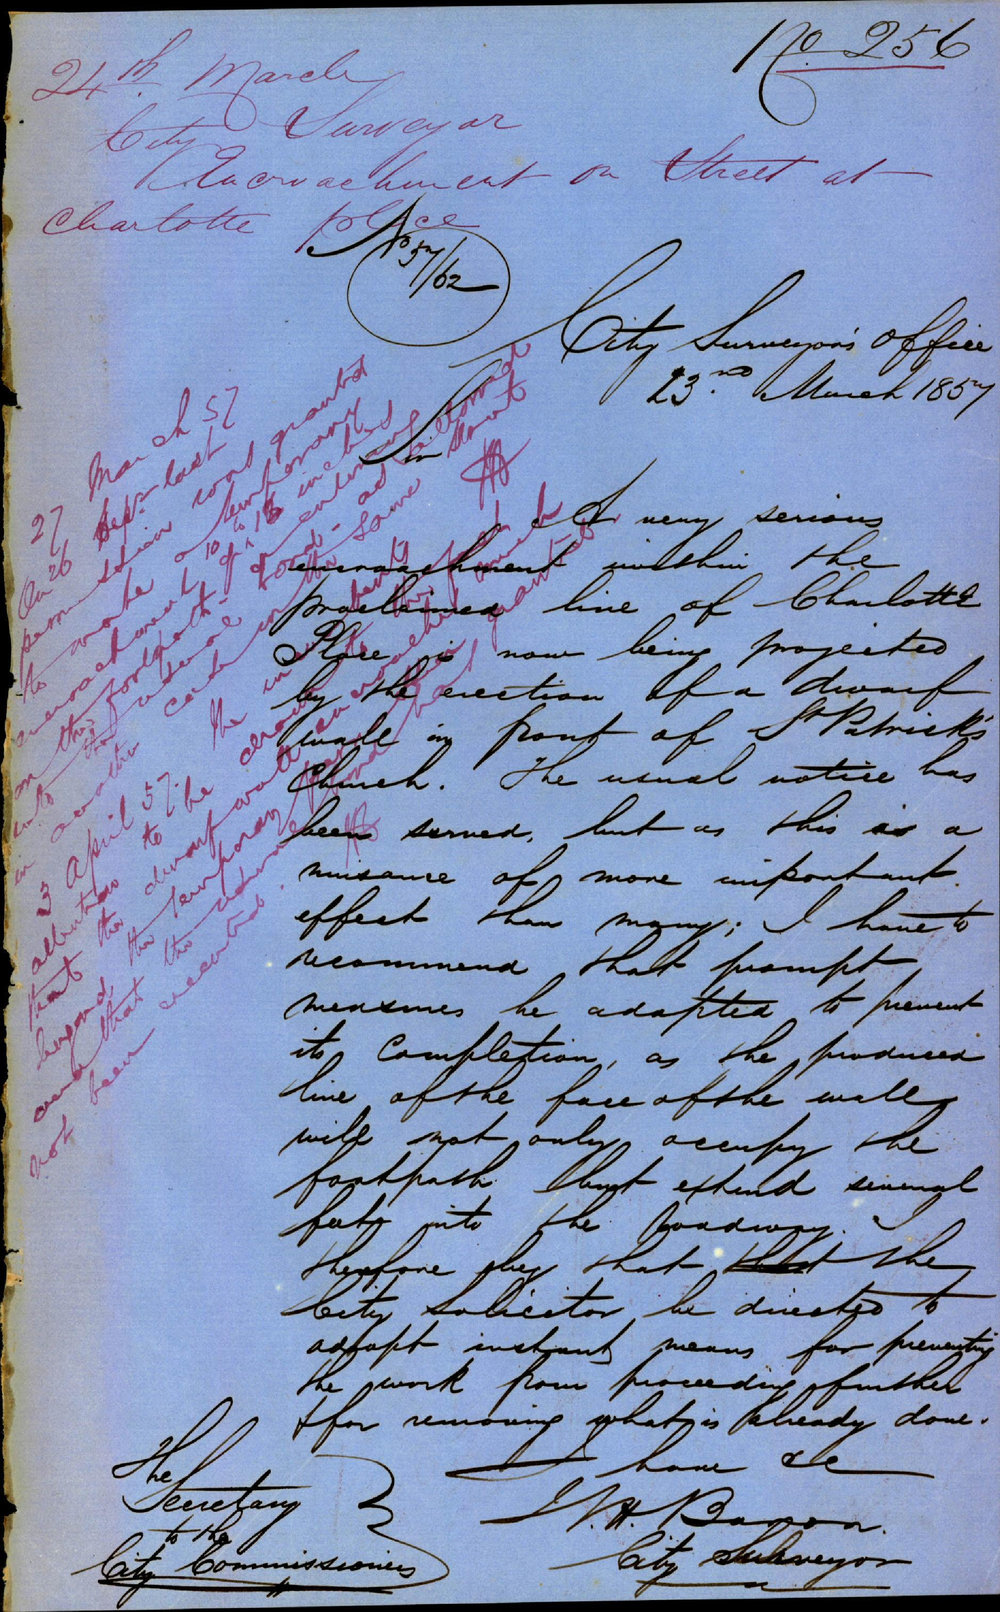 No 256
24th March
City Surveyor
Encroachment on Street at
Charlotte place
No 57/62
City Surveyor's Office
23rd March 1857
Sir
A very serious
encroachment within the
proclaimed line of Charlotte
Place is now being projected
by the erection of a dwarf
wall in front of St Patrick's
Church. The usual notice has
been served, but as this is a
nuisance of more important
effect than many; I have to
recommend that prompt
measures be adopted to prevent
its Completion, as the produced
line of the face of the wall
will not only occupy the
footpath but extend several
feet into the roadway. I
therefore beg that that the
City Solicitor be directed to
adopt instant means for preventing
the work from proceeding further
& for removing what is already done.
I have &c
City Surveyor
The
Secretary
to the
City Commissioners
27 March 57
On 26 Sepr last
permission was granted
to make a temporary
encroachment of 10 to 18 inches
on the footpath
3 April 57. The
attention to be
that the dwarf wall
beyond the temporary
and that the
not been executed.